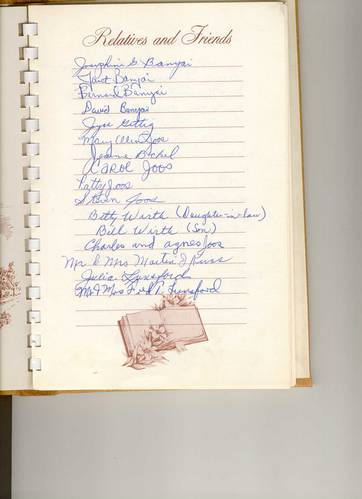 Relatives and Friends
Josephine G. Banyai
Janet Banyai
Bernard Banyai
David Banyai
Joyce Gettig
Mary Ellen Joos
Jeanne Bickel
CAROL JOOS
Patty Joos
Steven Joos
Betty Wirth (Daughter-in-law)
Bill Wirth (Son)
Charles and agnes Joos
Mr & Mrs Martin J
Julia Lunsford
Mr & Mrs Fred N Lunsford